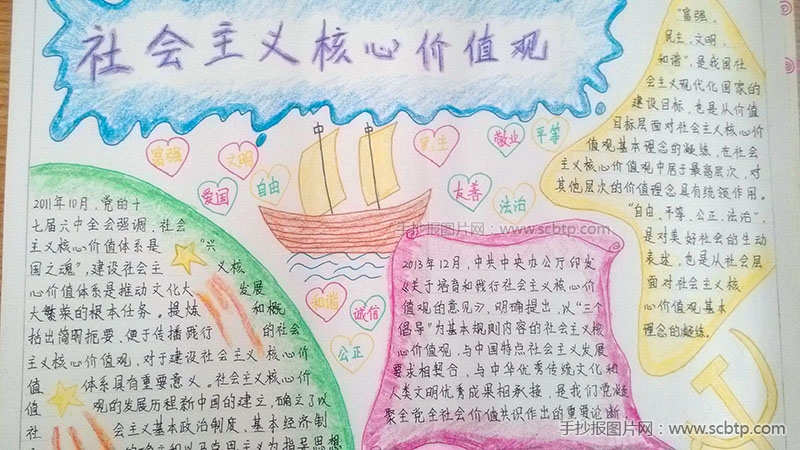 社会主义核心价值观
富强
文明
爱国
自由
民主
敬业
平等
友善
法治
和谐
诚信
公正
2011年10月,党的十
七届六中全会强调,社会
主义核心价值体系是“兴
国之魂”,建设社会主义核
心价值体系是推动文化大发展
大繁荣的根本任务。提炼和概
括出简明扼要、便于传播践行的社会
主义核心价值观,对于建设社会主义核心价
值体系具有重要意义。社会主义核心价
值观的发展历程新中国的建立,确立了以
社会主义基本政治制度、基本经济制
的确立和以马克思主义为指导思想
2013年12月,中共中央办公厅印发
《关于培育和践行社会主义核心价
值观的意见》,明确提出,以“三个
倡导”为基本规则内容的社会主义核
心价值观,与中国特点社会主义发展
要求相契合,与中华优秀传统文化和
人类文明优秀成果相承接,是我们党凝
聚全党全社会价值共识作出的重要论断
“富强、
民主、文明、
和谐”,是我国社
会主义现代化国家的
建设目标,也是从价值
目标层面对社会主义核心价
值观基本理念的凝练,在社会
主义核心价值观中居于最高层次,对
其他层次的价值理念具有统领作用。
“自由、平等、公正、法治”,
是对美好社会的生动
表述,也是从社会层
面对社会主义核
心价值观基本
理念的凝练。
手抄报图片网:www.scbtp.com
手抄报图片网:www.scbtp.com